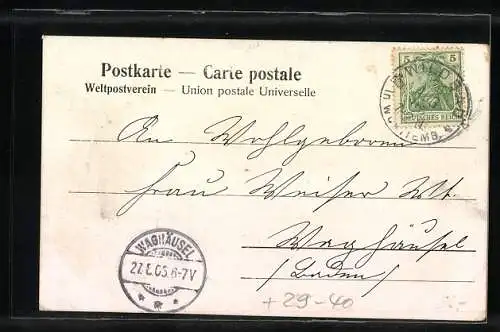 Postkarte — Carte postale
Weltpostverein — Union postale Universelle
5 5
DEUTSCHES REICH
WILDBAD
An Wohlgeboren
Frau Weiser Wt.
Waghäusel
(Baden)
WAGHÄUSEL
27.8.05.6-7V
+ 29-40